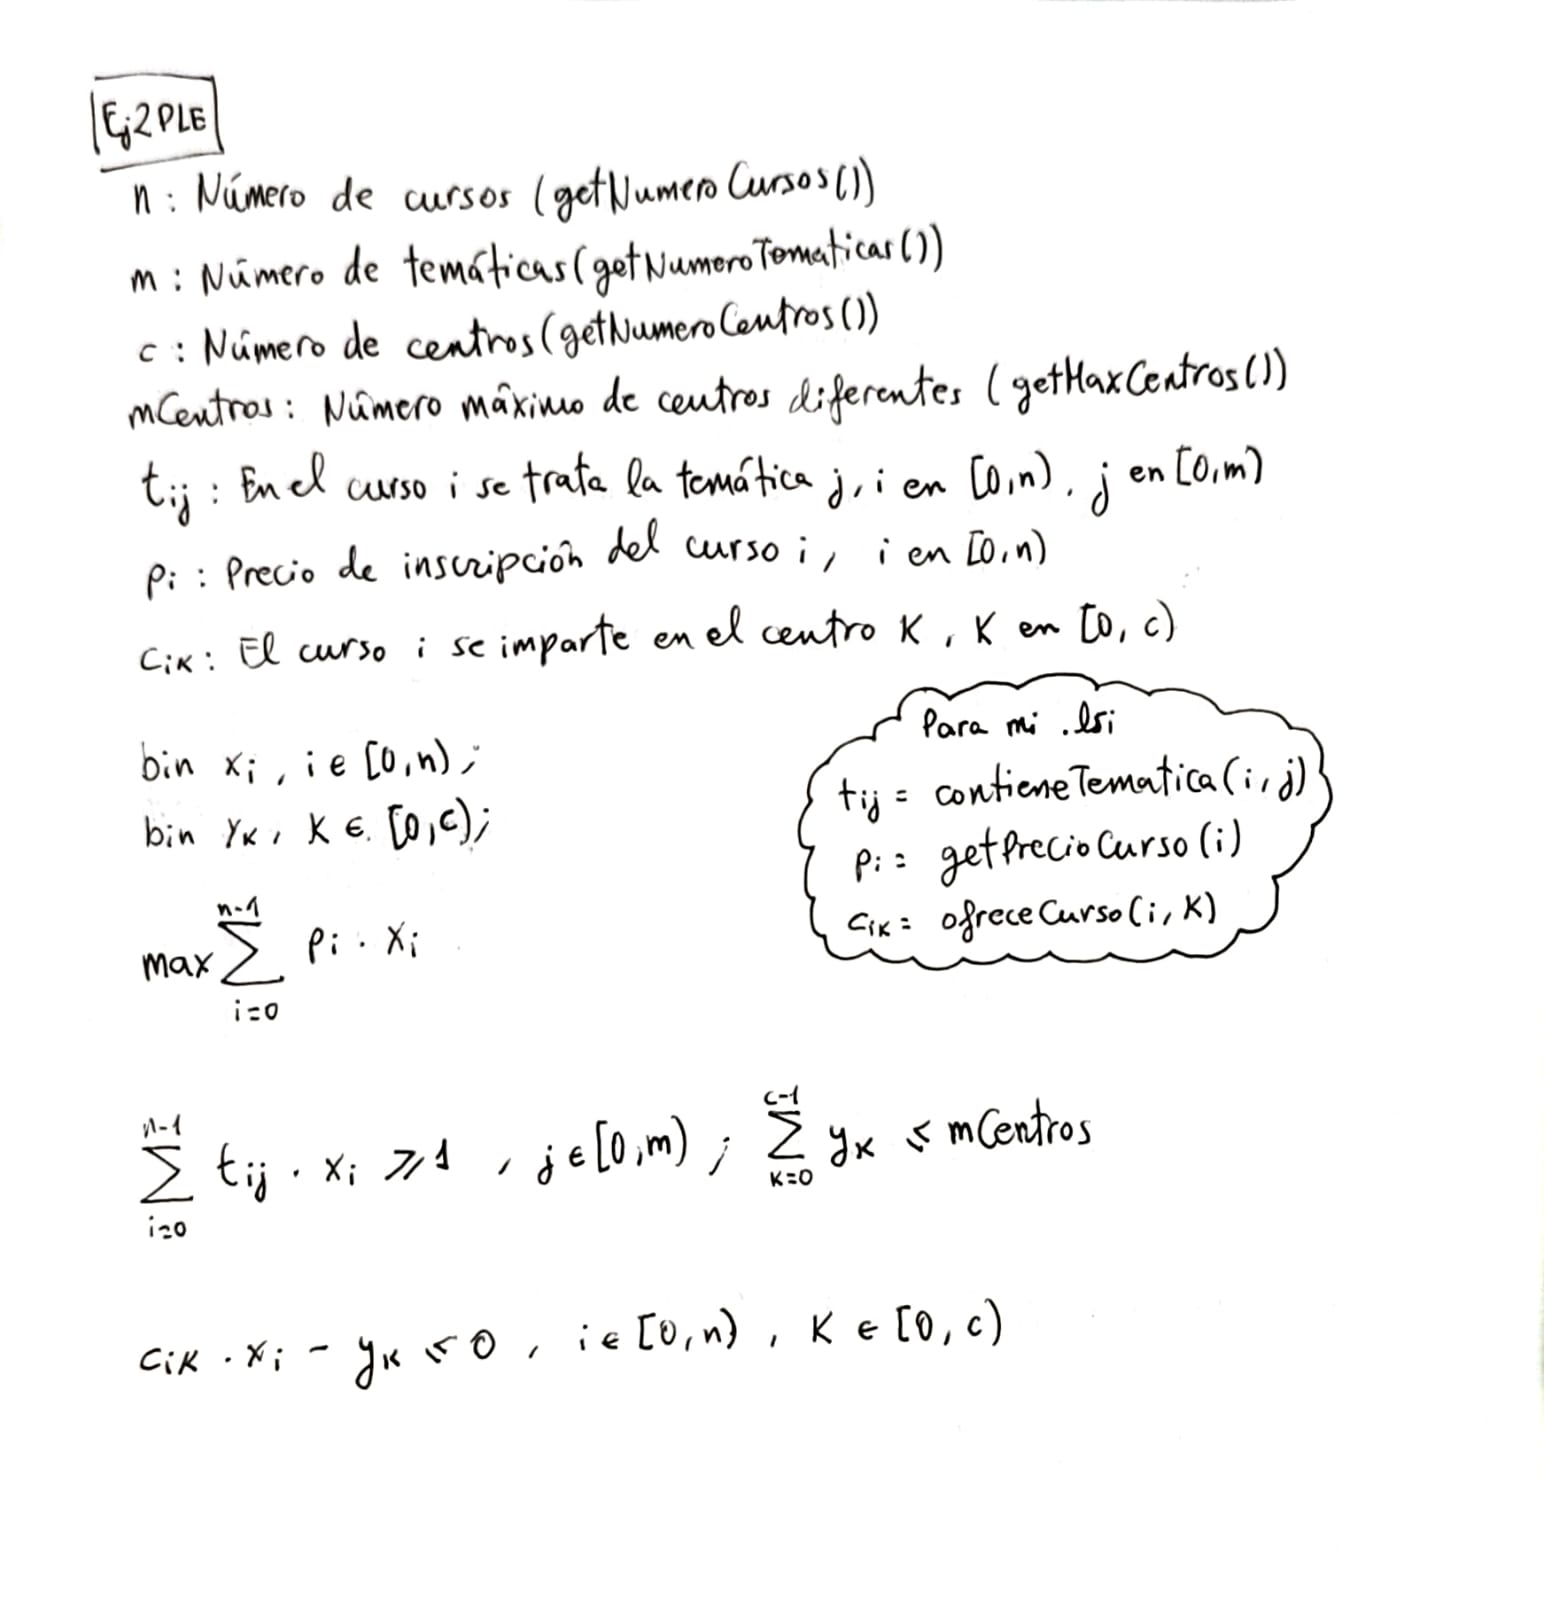 Ej2 PLE
n : Número de cursos (getNumeroCursos())
m : Número de temáticas (getNumeroTematicas())
c : Número de centros (getNumeroCentros())
mCentros : Número máximo de centros diferentes (getMaxCentros())
tij : En el curso i se trata la temática j, i en [0,n), j en [0,m)
pi : Precio de inscripción del curso i, i en [0,n)
cik : El curso i se imparte en el centro K, K en [0, c)
bin xi, i ∈ [0,n);
bin yk, K ∈ [0,c);
Para mi .lsi
tij = contieneTematica(i,j)
pi = getPrecioCurso(i)
cik = ofreceCurso(i,K)
max ∑_{i=0}^{n-1} pi · xi
∑_{i=0}^{n-1} tij · xi ≥ 1, j ∈ [0,m); ∑_{k=0}^{c-1} yk ≤ mCentros
cik · xi - yk ≤ 0, i ∈ [0,n), K ∈ [0,c)